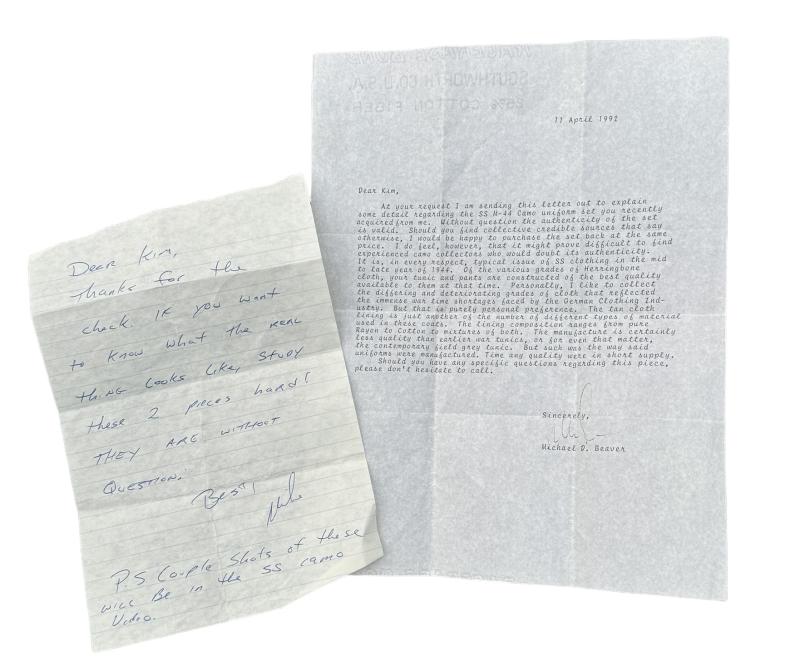 Dear Kim,
Thanks for the
check. IF you want
to know what the REAL
thing Looks Like, study
these 2 pieces hard!
THEY ARE WITHOUT
QUESTION!
Best,
Mike
P.S Couple shots of these
will Be in the SS camo
Video.
SOUTHWORTH CO.U.S.A.
25% COTTON FIBER
11 April 1992
Dear Kim,
At your request I am sending this letter out to explain
some detail regarding the SS M-44 Camo uniform set you recently
acquired from me. Without question the authenticity of the set
is valid. Should you find collective credible sources that say
otherwise, I would be happy to purchase the set back at the same
price. I do feel, however, that it might prove difficult to find
experienced camo collectors who would doubt its authenticity.
It is, in every respect, typical issue of SS clothing in the mid
to late year of 1944. Of the various grades of Herringbone
cloth, your tunic and pants are constructed of the best quality
available to them at that time. Personally, I like to collect
the differing and deteriorating grades of cloth that reflected
the immense war time shortages faced by the German Clothing Ind-
ustry. But that is purely personal preference. The tan cloth
lining is just another of the number of different types of material
used in these coats. The lining composition ranges from pure
Rayon to Cotton to mixtures of both. The manufacture is certainly
less quality than earlier war tunics, or for even that matter,
the contemporary field grey tunic. But such was the way said
uniforms were manufactured. Time any quality were in short supply.
Should you have any specific questions regarding this piece,
please don't hesitate to call.
Sincerely,
Michael D. Beaver